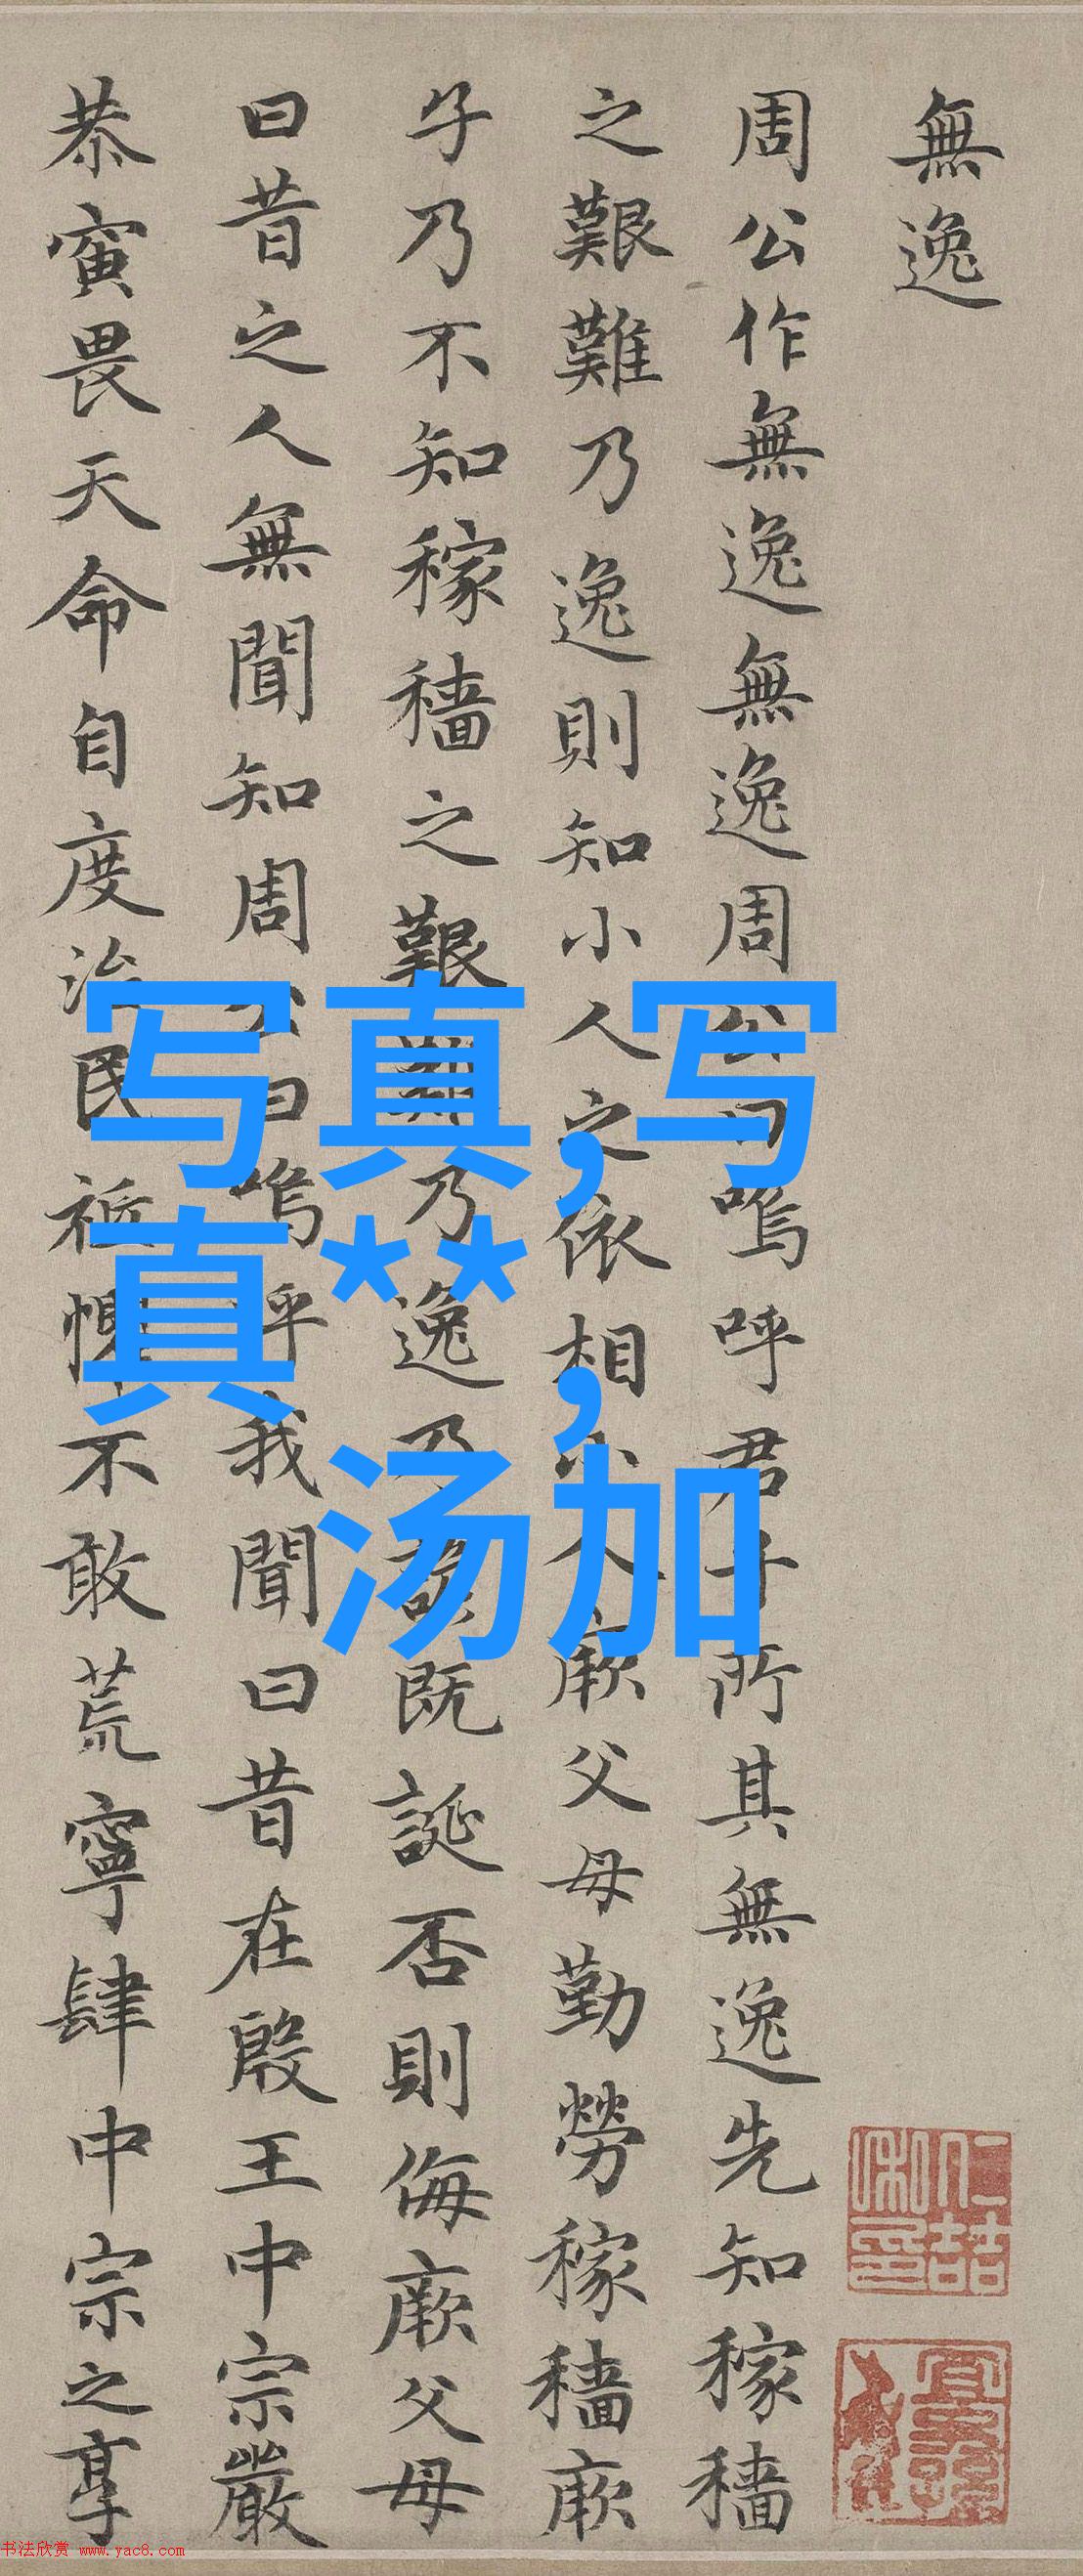 無逸
周公作無逸無逸周公曰嗚呼君子所其無逸先知稼穡
之艱難乃逸則知小人之依相小人厥父母勤勞稼穡厥
子乃不知稼穡之艱難乃逸乃諺既誕否則侮厥父母
曰昔之人無聞知周公曰嗚呼我聞曰昔在殷王中宗嚴
恭寅畏天命自度治民祗懼不敢荒寧肆中宗之享
写真,写
真**,
汤加
书法欣赏 www.yac8.com